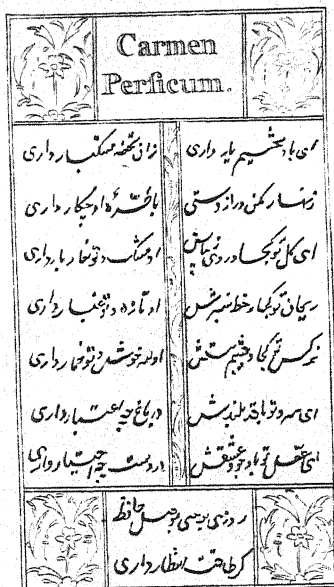 Carmen
Persicum.
ای باد نسیم یار داری زان نفحه مشکبار داری
زنهار مکن درازدستی با طرّهٔ او چکار داری
ای گل تو کجا و روی زیباش او مشک و تو خار بار داری
ریحان تو کجا و خط سبزش او تازه و تو غبار داری
نرگس تو کجا و چشم مستش او سرخوش و تو خمار داری
ای سرو تو با قد بلندش در باغ چه اعتبار داری
ای عقل تو با وجود عشقش در دست چه اختیار داری
روزی برسی بوصل حافظ
گر طاقت انتظار داری